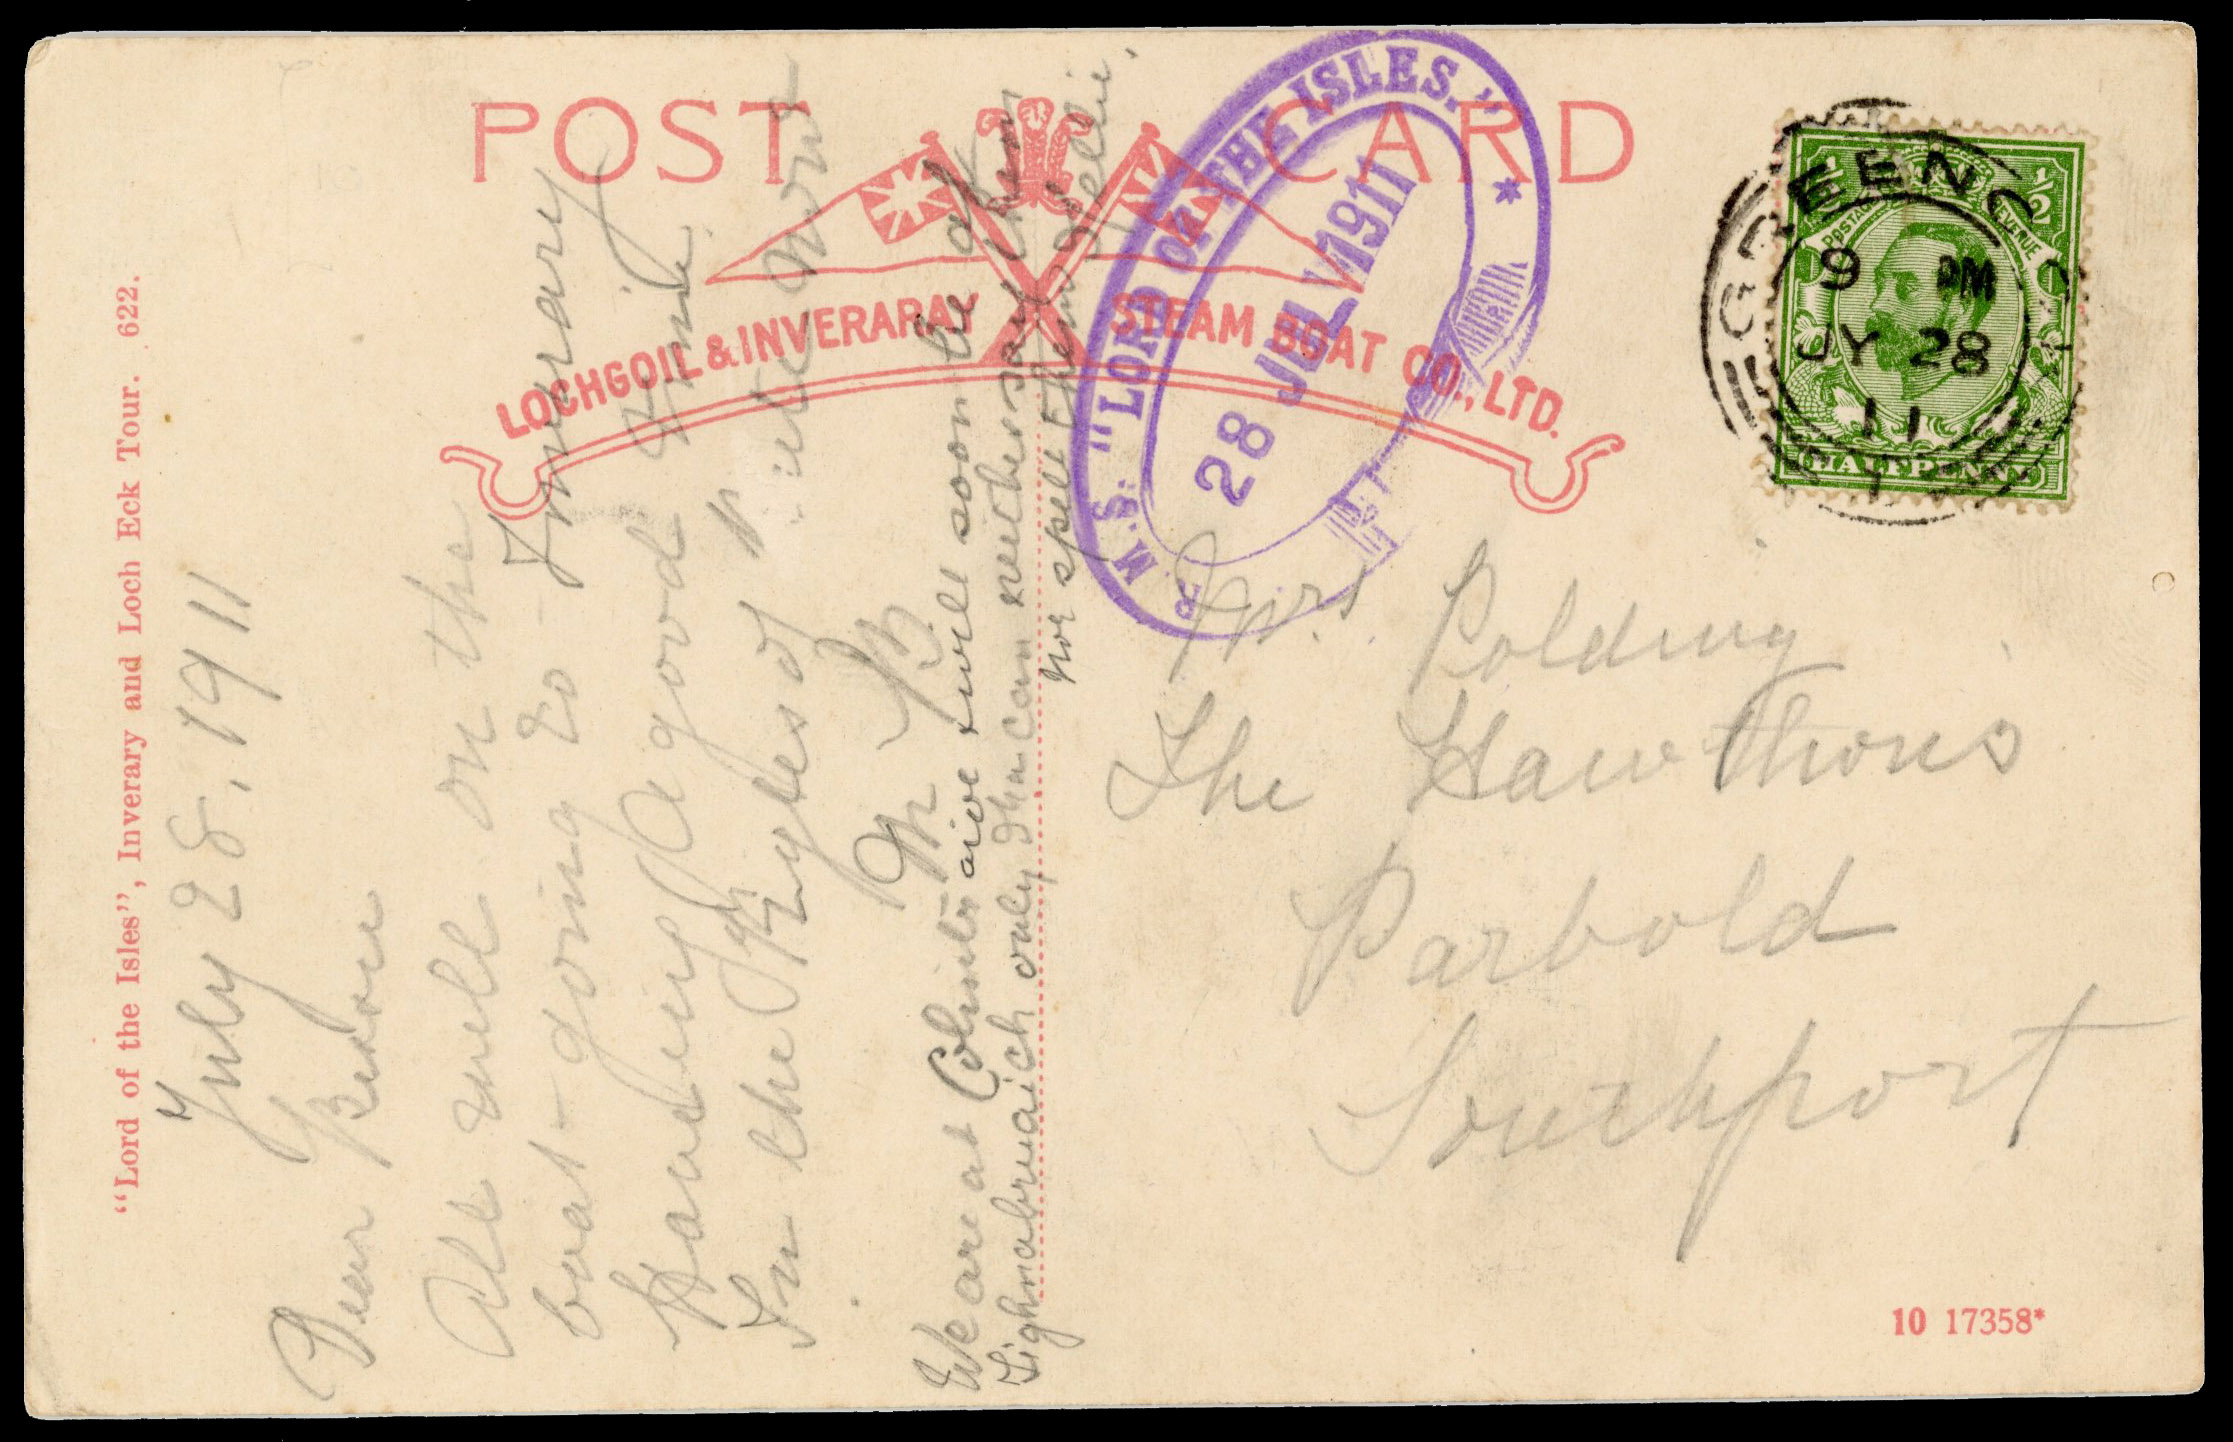 POST CARD
LOCHGOIL & INVERARAY STEAM BOAT CO., LTD.
"Lord of the Isles", Inverary and Loch Eck Tour. 622.
R.M.S. "LORD OF THE ISLES." *
28 JUL 1911
GREENOCK
9 PM
JY 28
11
POSTAGE REVENUE
½ ½
HALFPENNY
July 28. 1911
Dear
All well on the
boat - going to Inverary
Having a good time
In the Kyles of Bute now
M B
We are at Colintraive & will soon be at
Tighnabruaich only Ma can neither say them
nor spell them Nellie.
Mrs Polding
The Hawthorns
Parbold
Southport
10 17358*